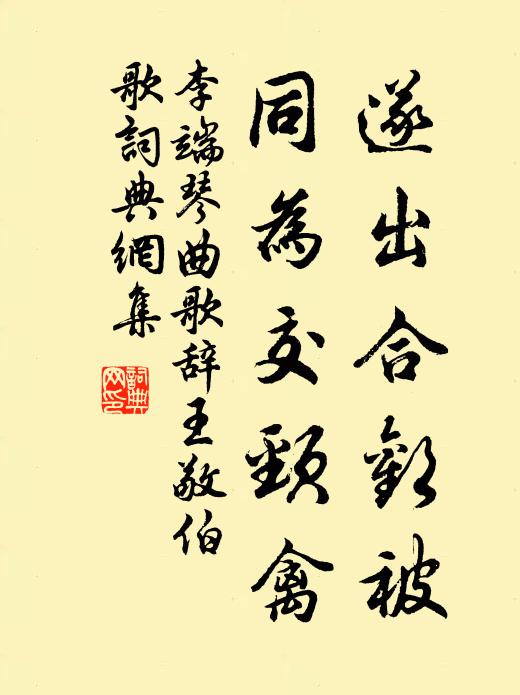 遂出合歡被
同為交頸禽
李端琴曲歌辞王敬伯
歌詞典網集
詞典網印